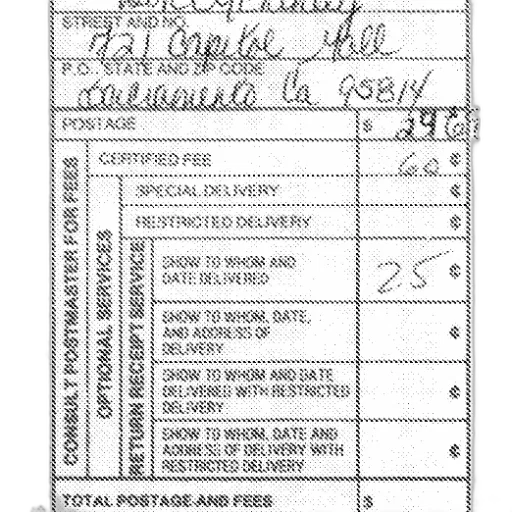 STREET AND NO.
721 Capitol Mall
P.O., STATE AND ZIP CODE
Sacramento Ca 95814
POSTAGE $
CERTIFIED FEE 60 ¢
SPECIAL DELIVERY ¢
RESTRICTED DELIVERY ¢
SHOW TO WHOM AND
DATE DELIVERED 25 ¢
SHOW TO WHOM, DATE,
AND ADDRESS OF
DELIVERY ¢
SHOW TO WHOM AND DATE
DELIVERED WITH RESTRICTED
DELIVERY ¢
SHOW TO WHOM, DATE AND
ADDRESS OF DELIVERY WITH
RESTRICTED DELIVERY ¢
CONSULT POSTMASTER FOR FEES
OPTIONAL SERVICES
RETURN RECEIPT SERVICE
TOTAL POSTAGE AND FEES $